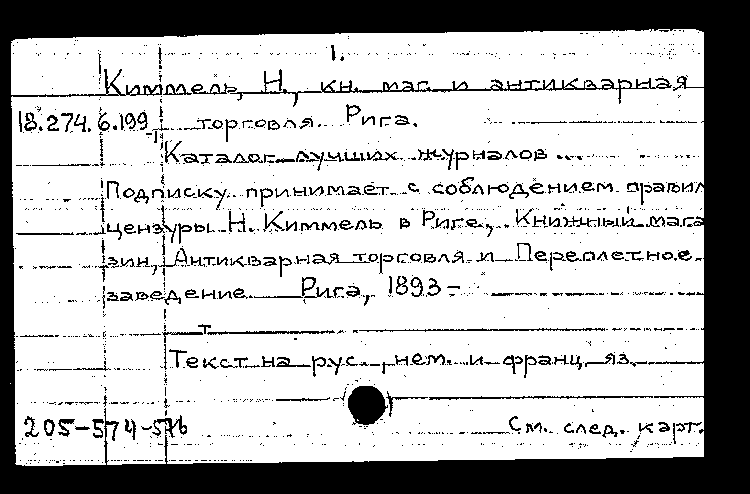 1.
Киммель, Н., кн. маг. и антикварная
18.274.6.199 торговля. Рига.
-1
Каталог лучших журналов...
Подписку принимает с соблюдением правил
цензуры Н. Киммель в Риге, Книжный мага
зин, Антикварная торговля и Переплетное
заведение Рига, 1893-
т
Текст на рус., нем. и франц. яз.
205-574-576
См. след. карт.